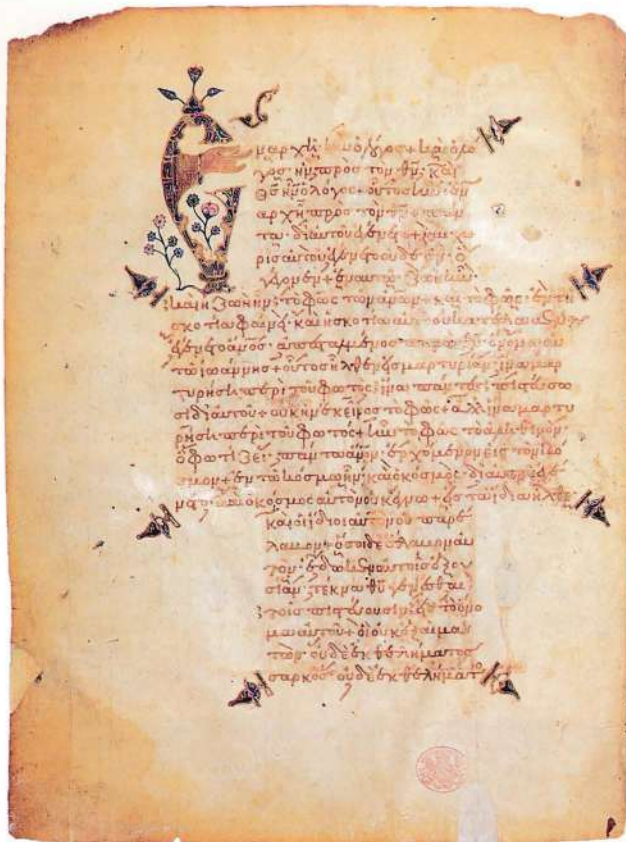 Ἐν ἀρχῆι ἦν ὁ λόγος + καὶ ὁ λό
γος ἦν πρὸς τὸν θν· καὶ
θς ἦν ὁ λόγος + οὗτος ἦν ἐν
ἀρχῆ πρὸς τὸν θν + πάν
τα δι αὐτοῦ ἐγένετο + καὶ χω
ρὶς αὐτοῦ ἐγένετο οὐδὲ ἓν· ὃ
γέγονεν + ἐν αὐτῶ ζωὴ ἦν·
καὶ ἡ ζωὴ ἦν τὸ φῶς τῶν ἀνων + καὶ τὸ φῶς ἐν τῆ
σκοτία φαίνει· καὶ ἡ σκοτία αὐτὸ οὐ κατέλαβεν
ἐγένετο ἀνος· ἀπεσταλμένος παρὰ θυ· ὄνομα αὐ
τῶ ἰωάννης + οὗτος ἦλθεν εἰς μαρτυρίαν· ἵνα μαρ
τυρήση περὶ τοῦ φωτός· ἵνα πάντες πιστεύσω
σι δι αὐτοῦ + οὐκ ἦν ἐκεῖνος τὸ φῶς + ἀλλ ἵνα μαρτυ
ρήση περὶ τοῦ φωτός + ἦν τὸ φῶς τὸ ἀληθινόν·
ὃ φωτίζει πάντα ἀνον· ἐρχόμενον εἰς τὸν κό
σμον + ἐν τῶ κόσμω ἦν· καὶ ὁ κόσμος δι αὐτοῦ ἐγέ
νετο· καὶ ὁ κόσμος αὐτὸν οὐκ ἔγνω + εἰς τὰ ἴδια ἦλθε
καὶ οἱ ἴδιοι αὐτὸν οὐ παρέ
λαβον + ὅσοι δὲ ἔλαβον αὐ
τόν· ἔδωκεν αὐτοῖς ἐξου
σίαν τέκνα θυ γενέσθαι
τοῖς πιστεύουσιν εἰς τὸ ὄνο
μα αὐτοῦ + οἳ οὐκ ἐξ αἱμά
των· οὐδὲ ἐκ θελήματος
σαρκὸς· οὐδὲ ἐκ θελήματ